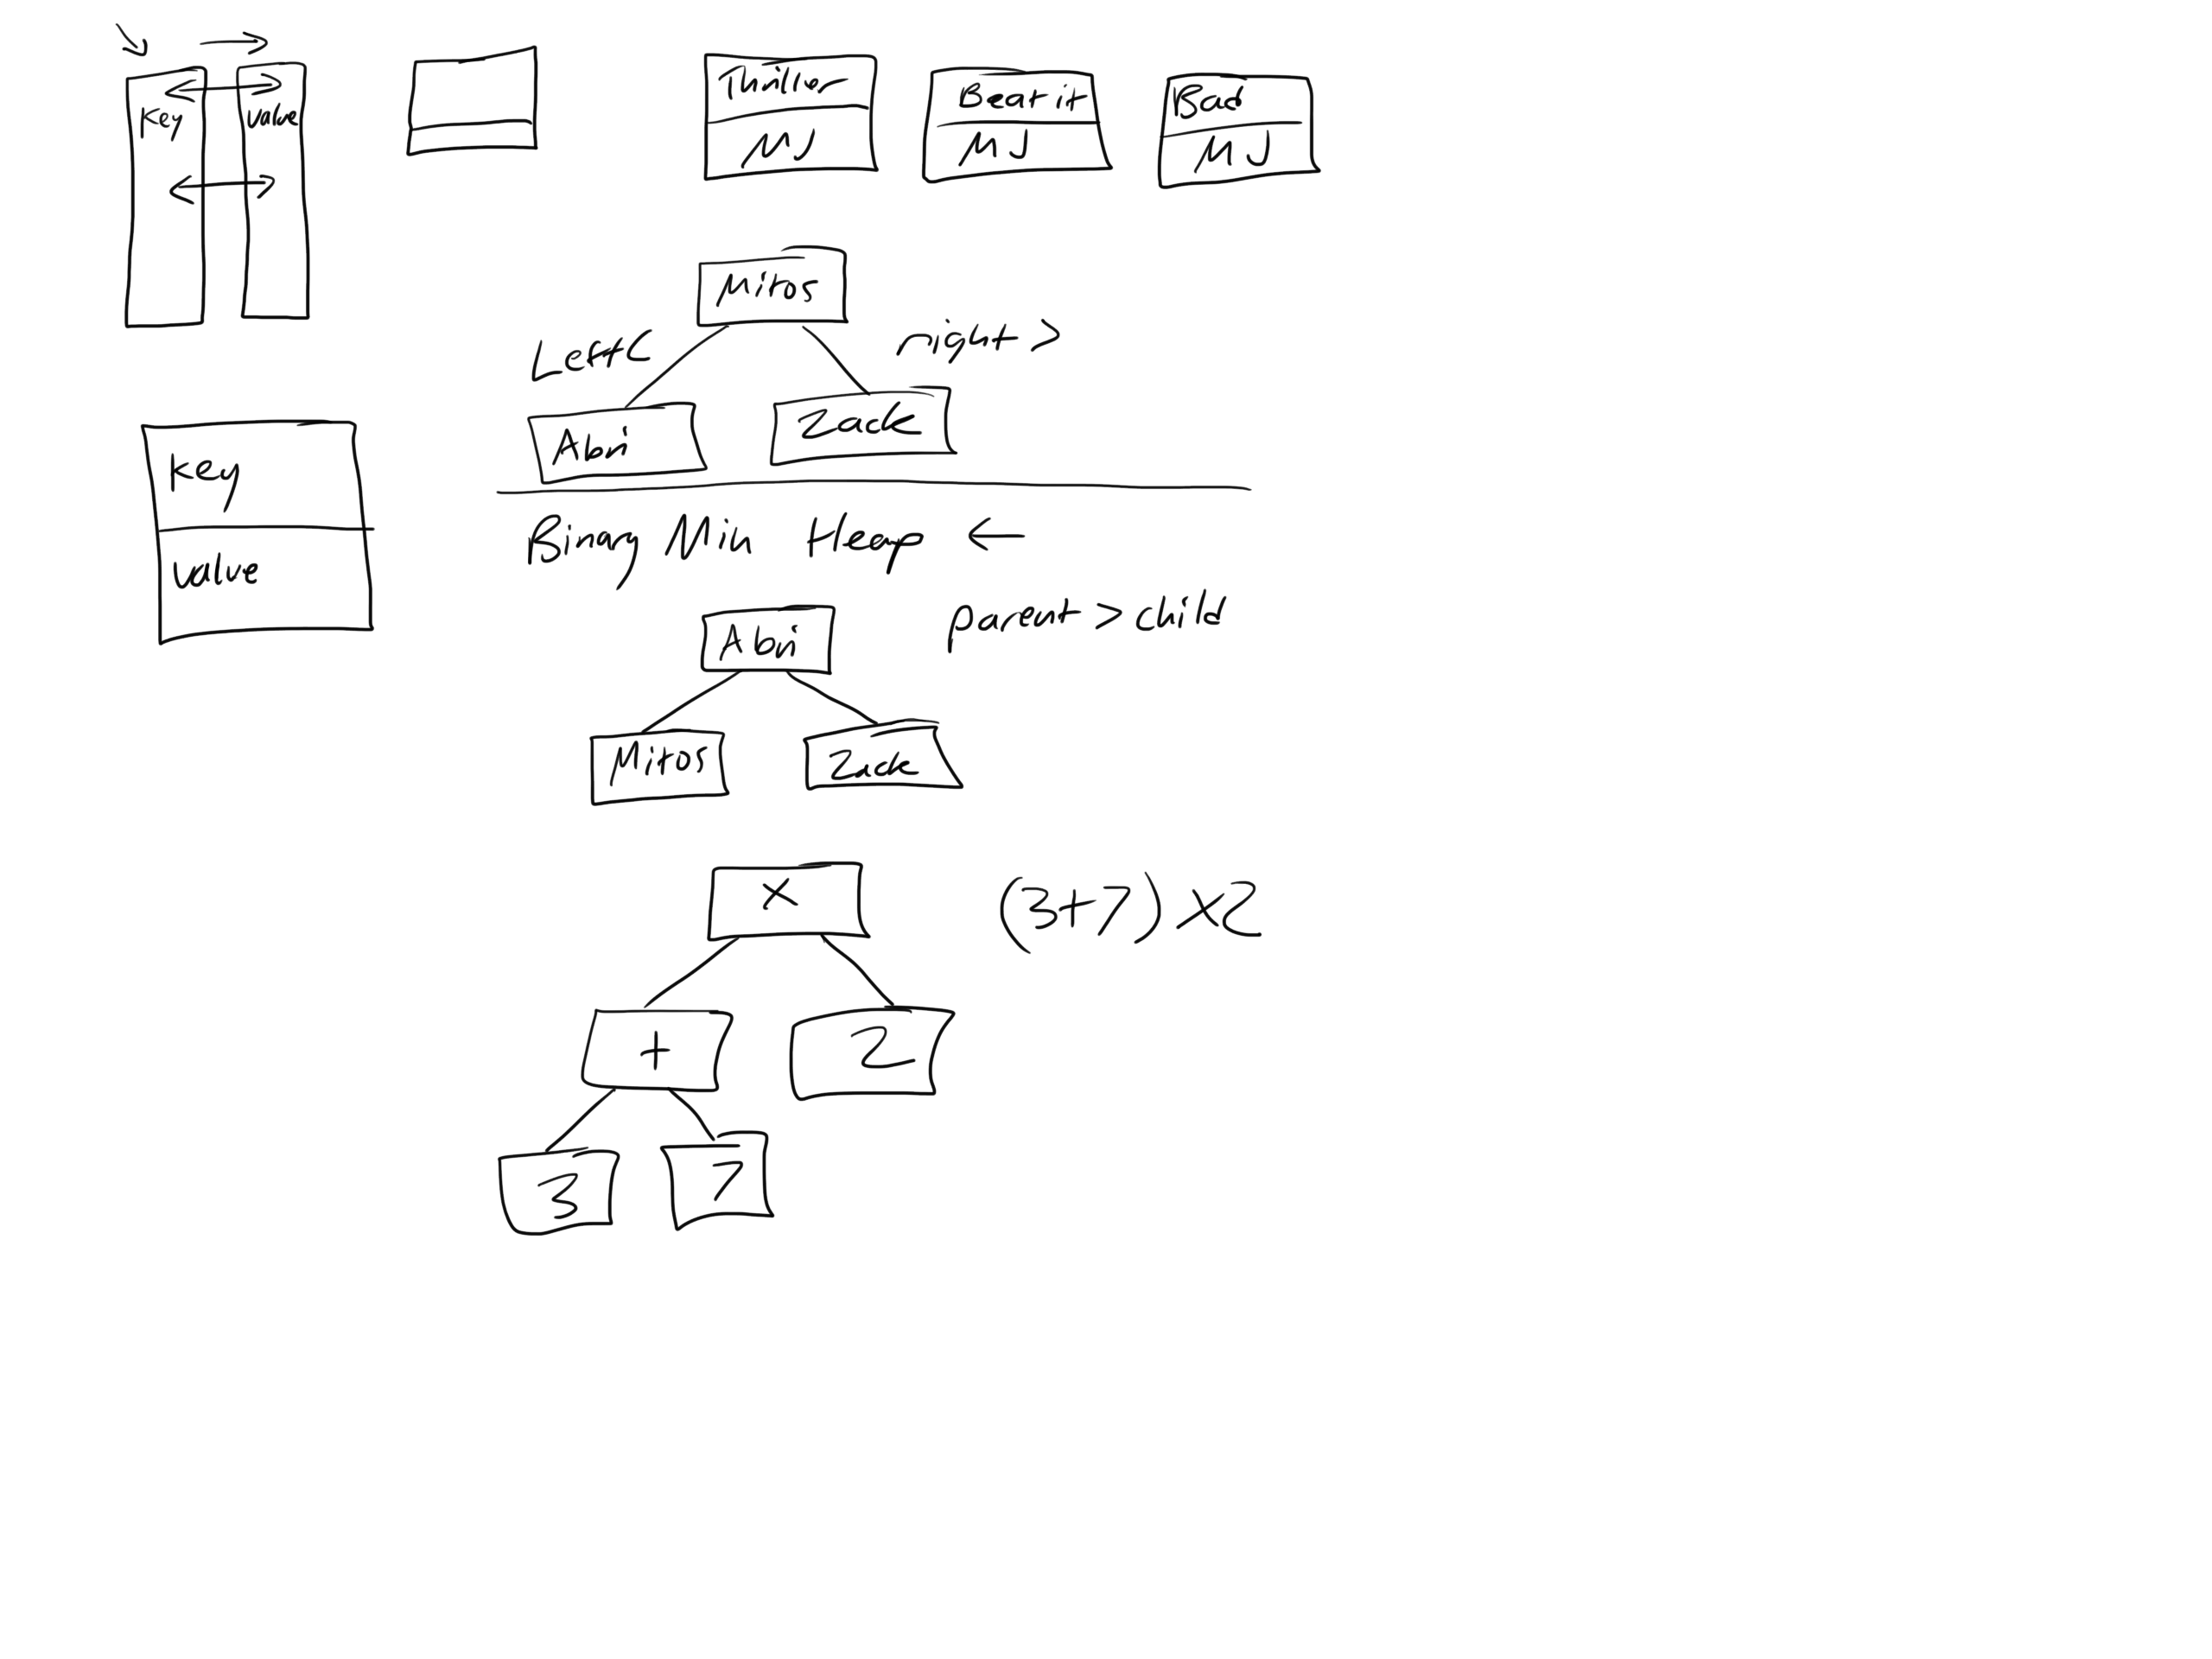 Key
value
Thriller
MJ
Beat it
MJ
Bad
MJ
Mitos
Left <
right >
Abri
Zack
Key
value
Binary Min Heap ←
parent > child
Abri
Mitos
Zack
×
(3+7) ×2
+
2
3
7